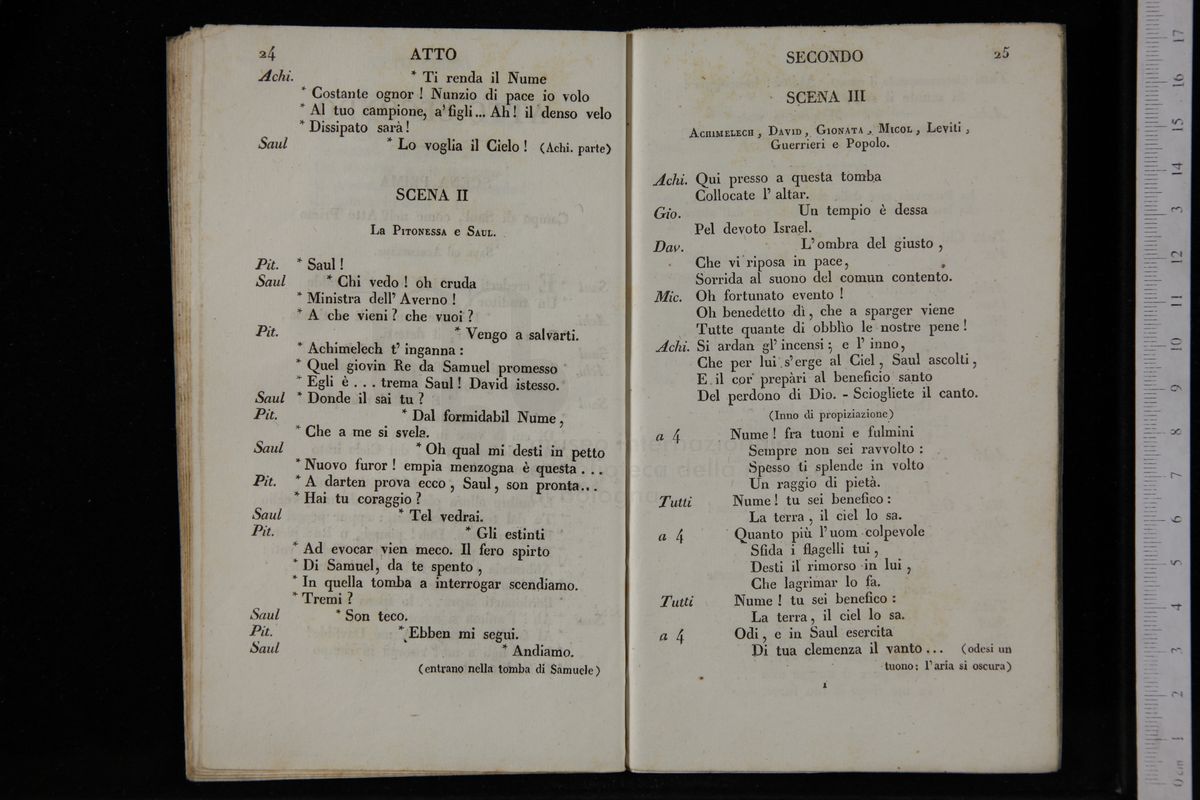 24 ATTO
Achi. * Ti renda il Nume
* Costante ognor ! Nunzio di pace io volo
* Al tuo campione, a' figli... Ah! il denso velo
* Dissipato sarà!
Saul * Lo voglia il Cielo ! (Achi. parte)
SCENA II
La Pitonessa e Saul.
Pit. * Saul !
Saul * Chi vedo ! oh cruda
* Ministra dell' Averno !
* A che vieni ? che vuoi ?
Pit. * Vengo a salvarti.
* Achimelech t' inganna :
* Quel giovin Re da Samuel promesso
* Egli è . . . trema Saul ! David istesso.
Saul * Donde il sai tu ?
Pit. * Dal formidabil Nume,
* Che a me si svela.
Saul * Oh qual mi desti in petto
* Nuovo furor ! empia menzogna è questa . . .
Pit. * A darten prova ecco, Saul, son pronta...
* Hai tu coraggio ?
Saul * Tel vedrai.
Pit. * Gli estinti
* Ad evocar vien meco. Il fero spirto
* Di Samuel, da te spento,
* In quella tomba a interrogar scendiamo.
* Tremi ?
Saul * Son teco.
Pit. * Ebben mi segui.
Saul * Andiamo.
(entrano nella tomba di Samuele)
SECONDO 25
SCENA III
Achimelech, David, Gionata, Micol, Leviti,
Guerrieri e Popolo.
Achi. Qui presso a questa tomba
Collocate l' altar.
Gio. Un tempio è dessa
Pel devoto Israel.
Dav. L' ombra del giusto,
Che vi riposa in pace,
Sorrida al suono del comun contento.
Mic. Oh fortunato evento !
Oh benedetto dì, che a sparger viene
Tutte quante di obblìo le nostre pene !
Achi. Si ardan gl' incensi; e l' inno,
Che per lui s' erge al Ciel, Saul ascolti,
E il cor prepàri al beneficio santo
Del perdono di Dio. - Sciogliete il canto.
(Inno di propiziazione)
a 4 Nume ! fra tuoni e fulmini
Sempre non sei ravvolto :
Spesso ti splende in volto
Un raggio di pietà.
Tutti Nume ! tu sei benefico :
La terra, il ciel lo sa.
a 4 Quanto più l' uom colpevole
Sfida i flagelli tui,
Desti il rimorso in lui,
Che lagrimar lo fa.
Tutti Nume ! tu sei benefico :
La terra, il ciel lo sa.
a 4 Odi, e in Saul esercita
Di tua clemenza il vanto ... (odesi un
tuono: l' aria si oscura)
1